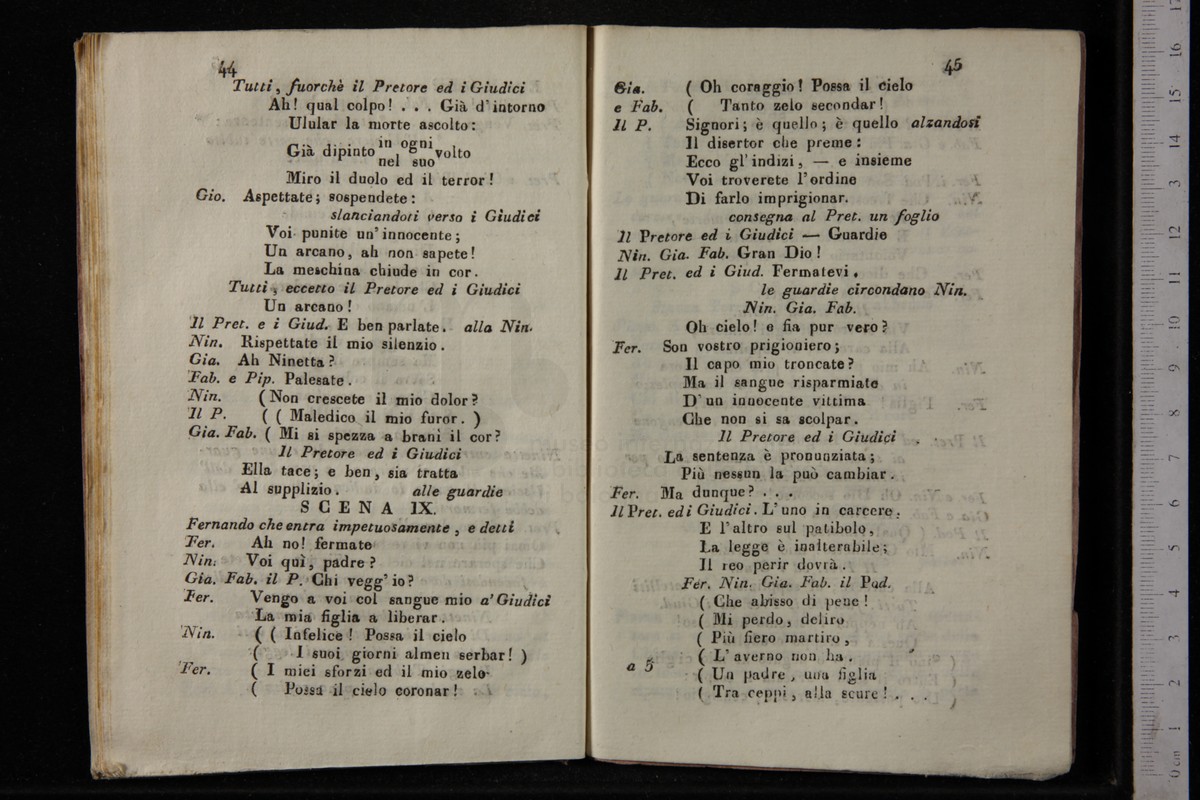 44
Tutti, fuorchè il Pretore ed i Giudici
Ah! qual colpo! . . . Già d'intorno
Ulular la morte ascolto:
Già dipinto in ogni volto
nel suo
Miro il duolo ed il terror!
Gio. Aspettate; sospendete:
slanciandosi verso i Giudici
Voi punite un'innocente;
Un arcano, ah non sapete!
La meschina chiude in cor.
Tutti, eccetto il Pretore ed i Giudici
Un arcano!
Il Pret. e i Giud. E ben parlate. alla Nin.
Nin. Rispettate il mio silenzio.
Gia. Ah Ninetta?
Fab. e Pip. Palesate.
Nin. (Non crescete il mio dolor?
Il P. ( ( Maledico il mio furor. )
Gia. Fab. ( Mi si spezza a brani il cor?
Il Pretore ed i Giudici
Ella tace; e ben, sia tratta
Al supplizio. alle guardie
SCENA IX.
Fernando che entra impetuosamente, e detti
Fer. Ah no! fermate
Nin. Voi quì, padre?
Gia. Fab. il P. Chi vegg'io?
Fer. Vengo a voi col sangue mio a' Giudici
La mia figlia a liberar.
Nin. ( ( Infelice! Possa il cielo
( I suoi giorni almen serbar! )
Fer. ( I miei sforzi ed il mio zelo
( Possa il cielo coronar!
45
Gia. ( Oh coraggio! Possa il cielo
e Fab. ( Tanto zelo secondar!
Il P. Signori; è quello; è quello alzandosi
Il disertor che preme:
Ecco gl'indizi, — e insieme
Voi troverete l'ordine
Di farlo imprigionar.
consegna al Pret. un foglio
Il Pretore ed i Giudici — Guardie
Nin. Gia. Fab. Gran Dio!
Il Pret. ed i Giud. Fermatevi.
le guardie circondano Nin.
Nin. Gia. Fab.
Oh cielo! e fia pur vero?
Fer. Son vostro prigioniero;
Il capo mio troncate?
Ma il sangue risparmiate
D'un innocente vittima
Che non si sa scolpar.
Il Pretore ed i Giudici
La sentenza è pronunziata;
Più nessun la può cambiar.
Fer. Ma dunque? . . .
Il Pret. ed i Giudici. L'uno in carcere.
E l'altro sul patibolo,
La legge è inalterabile;
Il reo perir dovrà.
Fer. Nin. Gia. Fab. il Pod.
( Che abisso di pene!
( Mi perdo, deliro
( Più fiero martiro,
( L'averno non ha.
a 5
( Un padre, una figlia
( Tra ceppi, alla scure! . . .